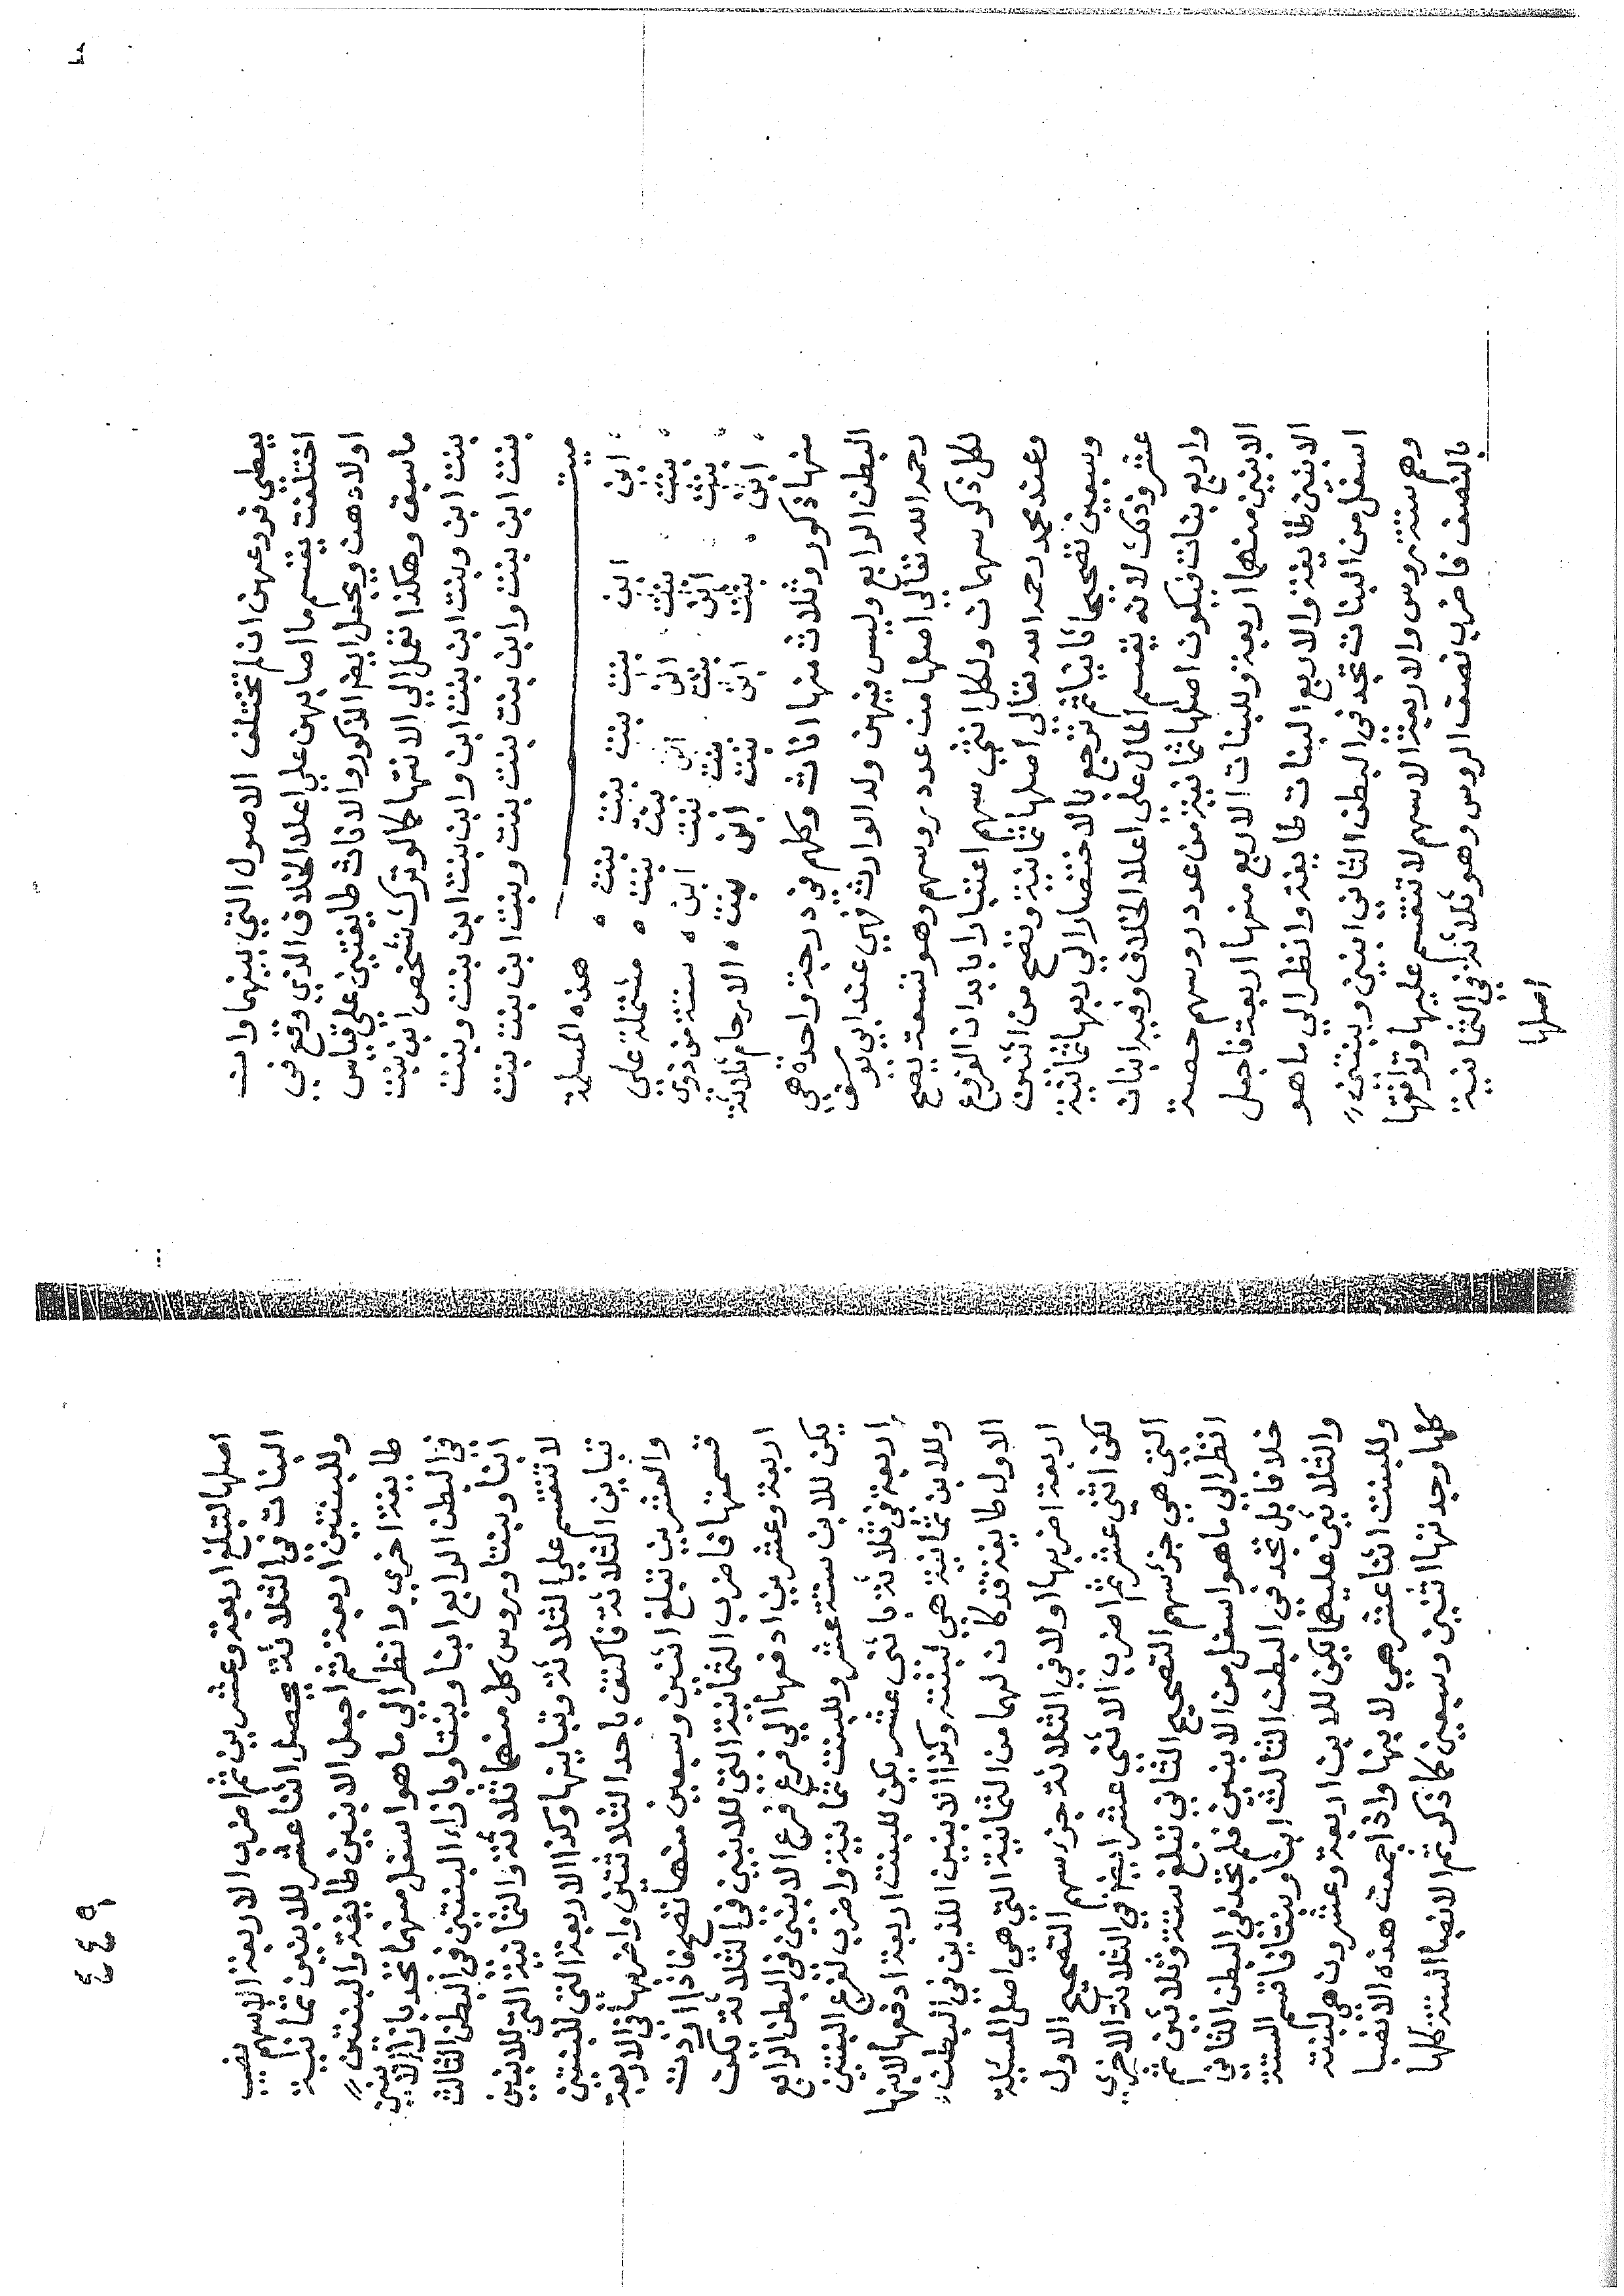 يعطي فروعهن ان لم تختلف الاصول التي بينهما وان
اختلفت يقسم ما اصابهن علي اعلا الخلاف الذي وقع في
اولادهن ويجعل ايضا الذكور والاناث طايفتين علي قياس
ما سبق وهكذا نعمل الي الانتها كما لو ترك شخص ابن بنت
بنت ابن وبنت ابن بنت ابن وابن بنت ابن بنت وبنت
بنت ابن بنت وابن بنت بنت بنت وبنت ابن بنت بنت
ميت
هذه المسلة
ابن ابن بنت بنت بنت بنت
مشتملة علي
بنت بنت ابن بنت بنت
ستة من ذوي
بنت ابن بنت ابن بنت ابن
الارحام ثلاثة
ابن بنت ابن بنت ابن بنت
منها ذكور وثلاث منها اناث وكلهم في درجة واحدة هي
البطن الرابع وليس فيهن ولد الوارث فهي عند ابي يوسف
رحمه الله تعالي اصلها من عدد روسهم وهو تسعة يصح
لكل ذكر سهمان ولكل انثي سهم اعتبارا بابدان الفروع
وعند محمد رحمه الله تعالي اصلها ثمانية وتصح من اثنين
وسبعين تصحيحا ثانيا ثم ترجع بالاختصار الي ربعها ثمانية
عشر وذلك لانه يقسم المال علي اعلا الخلاف وفيه ابنان
واربع بنات فيكون اصلها ثمانية من عدد روسهم حصة
الابنين منهما اربعة وللبنات الاربع منها اربعة فاجعل
الابنين طايفة والاربع البنات طايفة وانظر الي ما هو
اسفل من البنات تجد في البطن الثاني ابنين وبنتين
وهم ستة روس والاربعة الاسهم لا تنقسم عليها وتوافقها
بالنصف فاضرب نصف الروس وهو ثلاثة في الثمانية
اصلها
٤٤٩
اصلها لتبلغ اربعة وعشرين ثم اضرب الاربعة الاسهم نصيب
البنات في الثلاثة يحصل اثنا عشر للابنين ثمانية
وللبنتين اربعة ثم اجعل الابنين طايفة والبنتين
طايفة اخري وانظر الي ما هو اسفل منهما تجد بازا الابنين
في البطن الرابع ابنا وبنتا وبازاء البنتين في البطن الثالث
ابنا وبنتا وروس كل منهما ثلاثة والثمانية التي للابنين
لا تنقسم علي الثلاثة وتباينها وكذا الاربعة التي للبنتين
تباين الثلاثة فاكتف باحد الثلاثتين واضربها في الاربعة
والعشرين تبلغ اثنين وسبعين منها تصح فاذا اردت
قسمتها فاضرب الثمانية التي للابنين في الثلاثة تكن
اربعة وعشرين ادفعها الي فرع فرع الابنين في البطن الرابع
يكن للابن ستة عشر وللبنت ثمانية واضرب لفرع البنتين
اربعة في ثلاثة باثني عشر يكن للبنت اربعة ادفعها لابنها
وللابن ثمانية هي لبنته وكذا الابنين اللذين في البطن
الاول طايفة قد كان لهما من الثمانية التي هي اصل المسئلة
اربعة اضربها اولا في الثلاثة جزء سهم التصحيح الاول
تكن اثني عشر ثم اضرب الاثني عشر ايضا في الثلاثة الاخري
التي هي جزء سهم التصحيح الثاني تبلغ ستة وثلاثين ثم
انظر الي ما هو اسفل من الابنين فلم تجد في البطن الثاني
خلافا بل تجد في البطن الثالث ابنا وبنتا فاقسم الستة
والثلاثين عليهما يكن للابن اربعة وعشرون هي لبنته
وللبنت اثنا عشر هي لابنها واذا جمعت هذه الانصبا
كلها وجدتها اثنين وسبعين كما ذكر ثم الانصبا الستة كلها